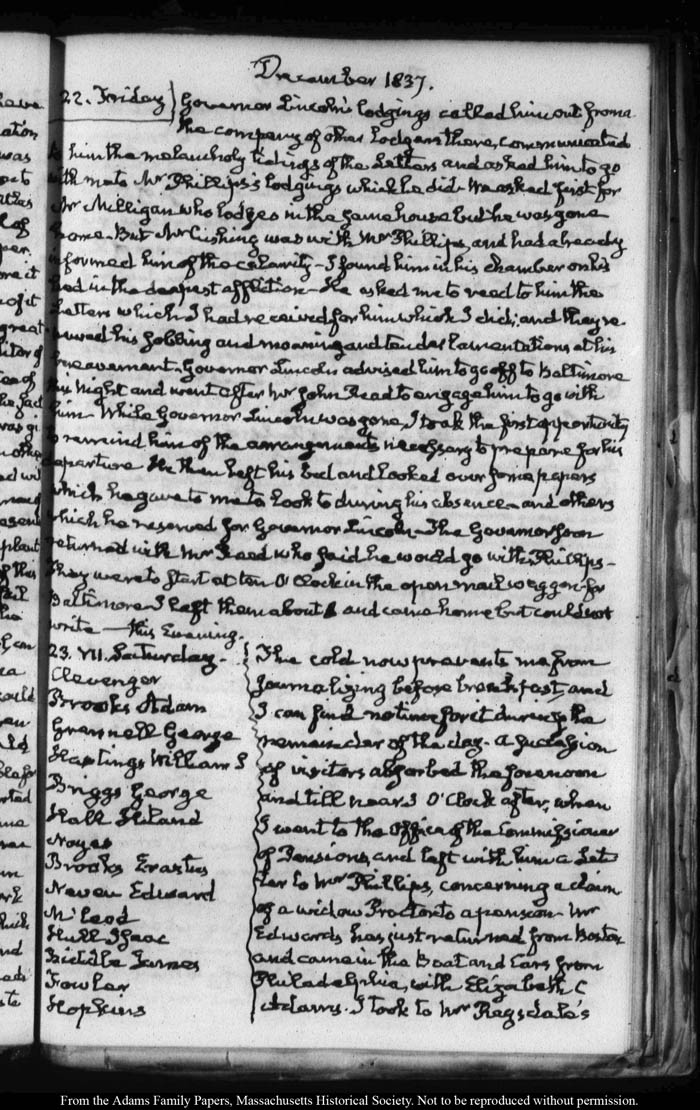 December 1837.
22. Friday
Governor Lincoln's lodgings called him out from a
the company of other Lodgers there, communicated
to him the melancholy tidings of the Letters and asked him to go
with me to Mr Phillips's lodgings which he did. We asked first for
Mr Milligan who lodges in the same house but he was gone
home. But Mr Cushing was with Mr Phillips, and had already
informed him of the calamity – I found him in his chamber on his
bed in the deepest affliction – He asked me to read to him the
Letters which I had received for him which I did; and they re-
newed his sobbing and moaning and tender lamentations at his
bereavement. Governor Lincoln advised him to go off to Baltimore
this Night and went after Mr John Reed to engage him to go with
him – While Governor Lincoln was gone, I took the first opportunity
to remind him of the arrangements necessary to prepare for his
departure. He then left his bed and looked over some papers
which he gave to me to look to during his absence – and others
which he reserved for Governor Lincoln – The Governor soon
returned with Mr Reed who said he would go with Phillips –
They were to start at ten O'Clock in the open mail waggon for
Baltimore. I left them about 8 and came home but could not
write – this Evening.
23. VII. Saturday.
Clevenger
Brooks Adam
Grennell George
Hastings William S
Briggs George
Hall Hiland
Noyes
Brooks Erastus
Neven Edward
McLeod
Hull Isaac
Biddle James
Fowler
Hopkins
The cold now prevents me from
journalizing before breakfast, and
I can find no time for it during the
remainder of the day. A succession
of visitors absorbed the forenoon
and till near 3 O'Clock after, when
I went to the Office of the Commissioner
of Pensions, and left with him a Let-
ter to Mr Phillips, concerning a claim
of a widow Proctor to a pension. Mr
Edwards has just returned from Boston
and came in the Boat and Cars from
Philadelphia, with Elizabeth C
Adams. I took to Mr Ragsdale's
From the Adams Family Papers, Massachusetts Historical Society. Not to be reproduced without permission.